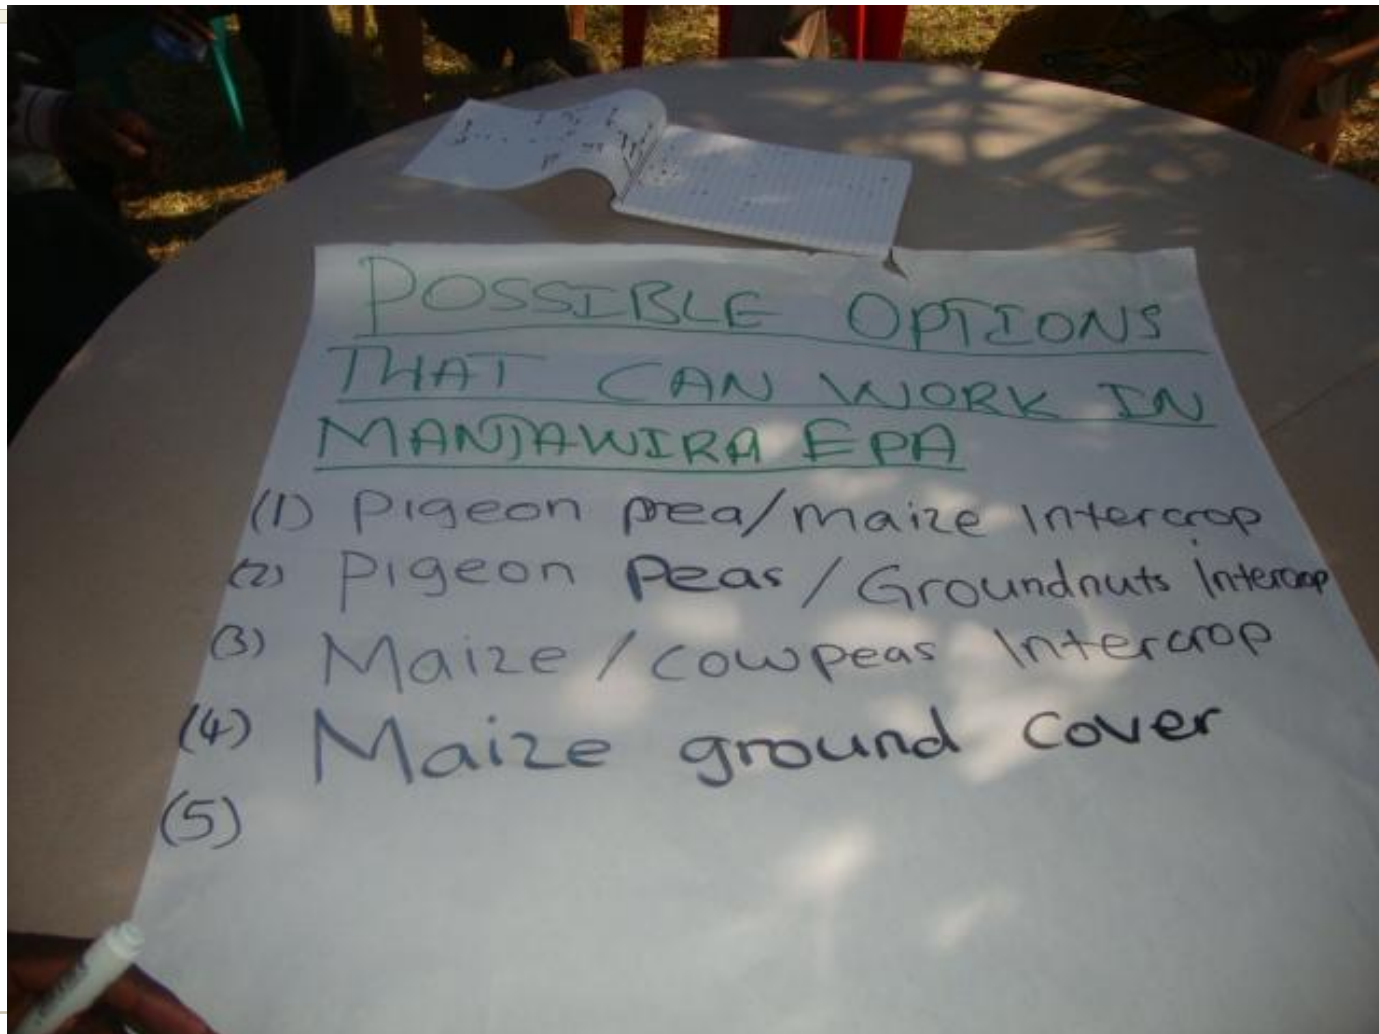 POSSIBLE OPTIONS
THAT CAN WORK IN
MANJAWIRA EPA
(1) Pigeon pea/maize Intercrop
(2) Pigeon Peas / Groundnuts Intercrop
(3) Maize / cowpeas Intercrop
(4) Maize ground cover
(5)